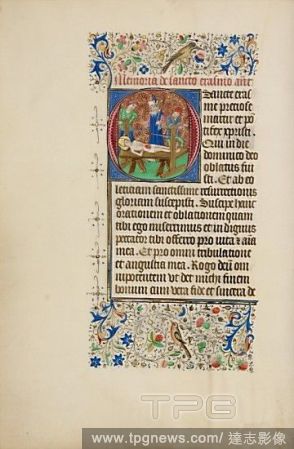 Memoria de sancto erasmo ante
Sancte eras
me preciose
martir et po
tifex xpristi.
Qui in die
dominico deo
oblatus fui
sti. Et ab eo
leticiam sanctissime resurrectionis
gloriam suscepisti. Suscipe hanc
orationem et oblationem quam
tibi ego miserrimus et indignus
peccator tibi offero pro vita et aīa
mea. Et pro omni tribulatione
et angustia mea. Rogo deū om
nipotentem vt det michi finem
bonum cum vera fide et sincera de
TPG
www.tpgnews.com / 達志影像